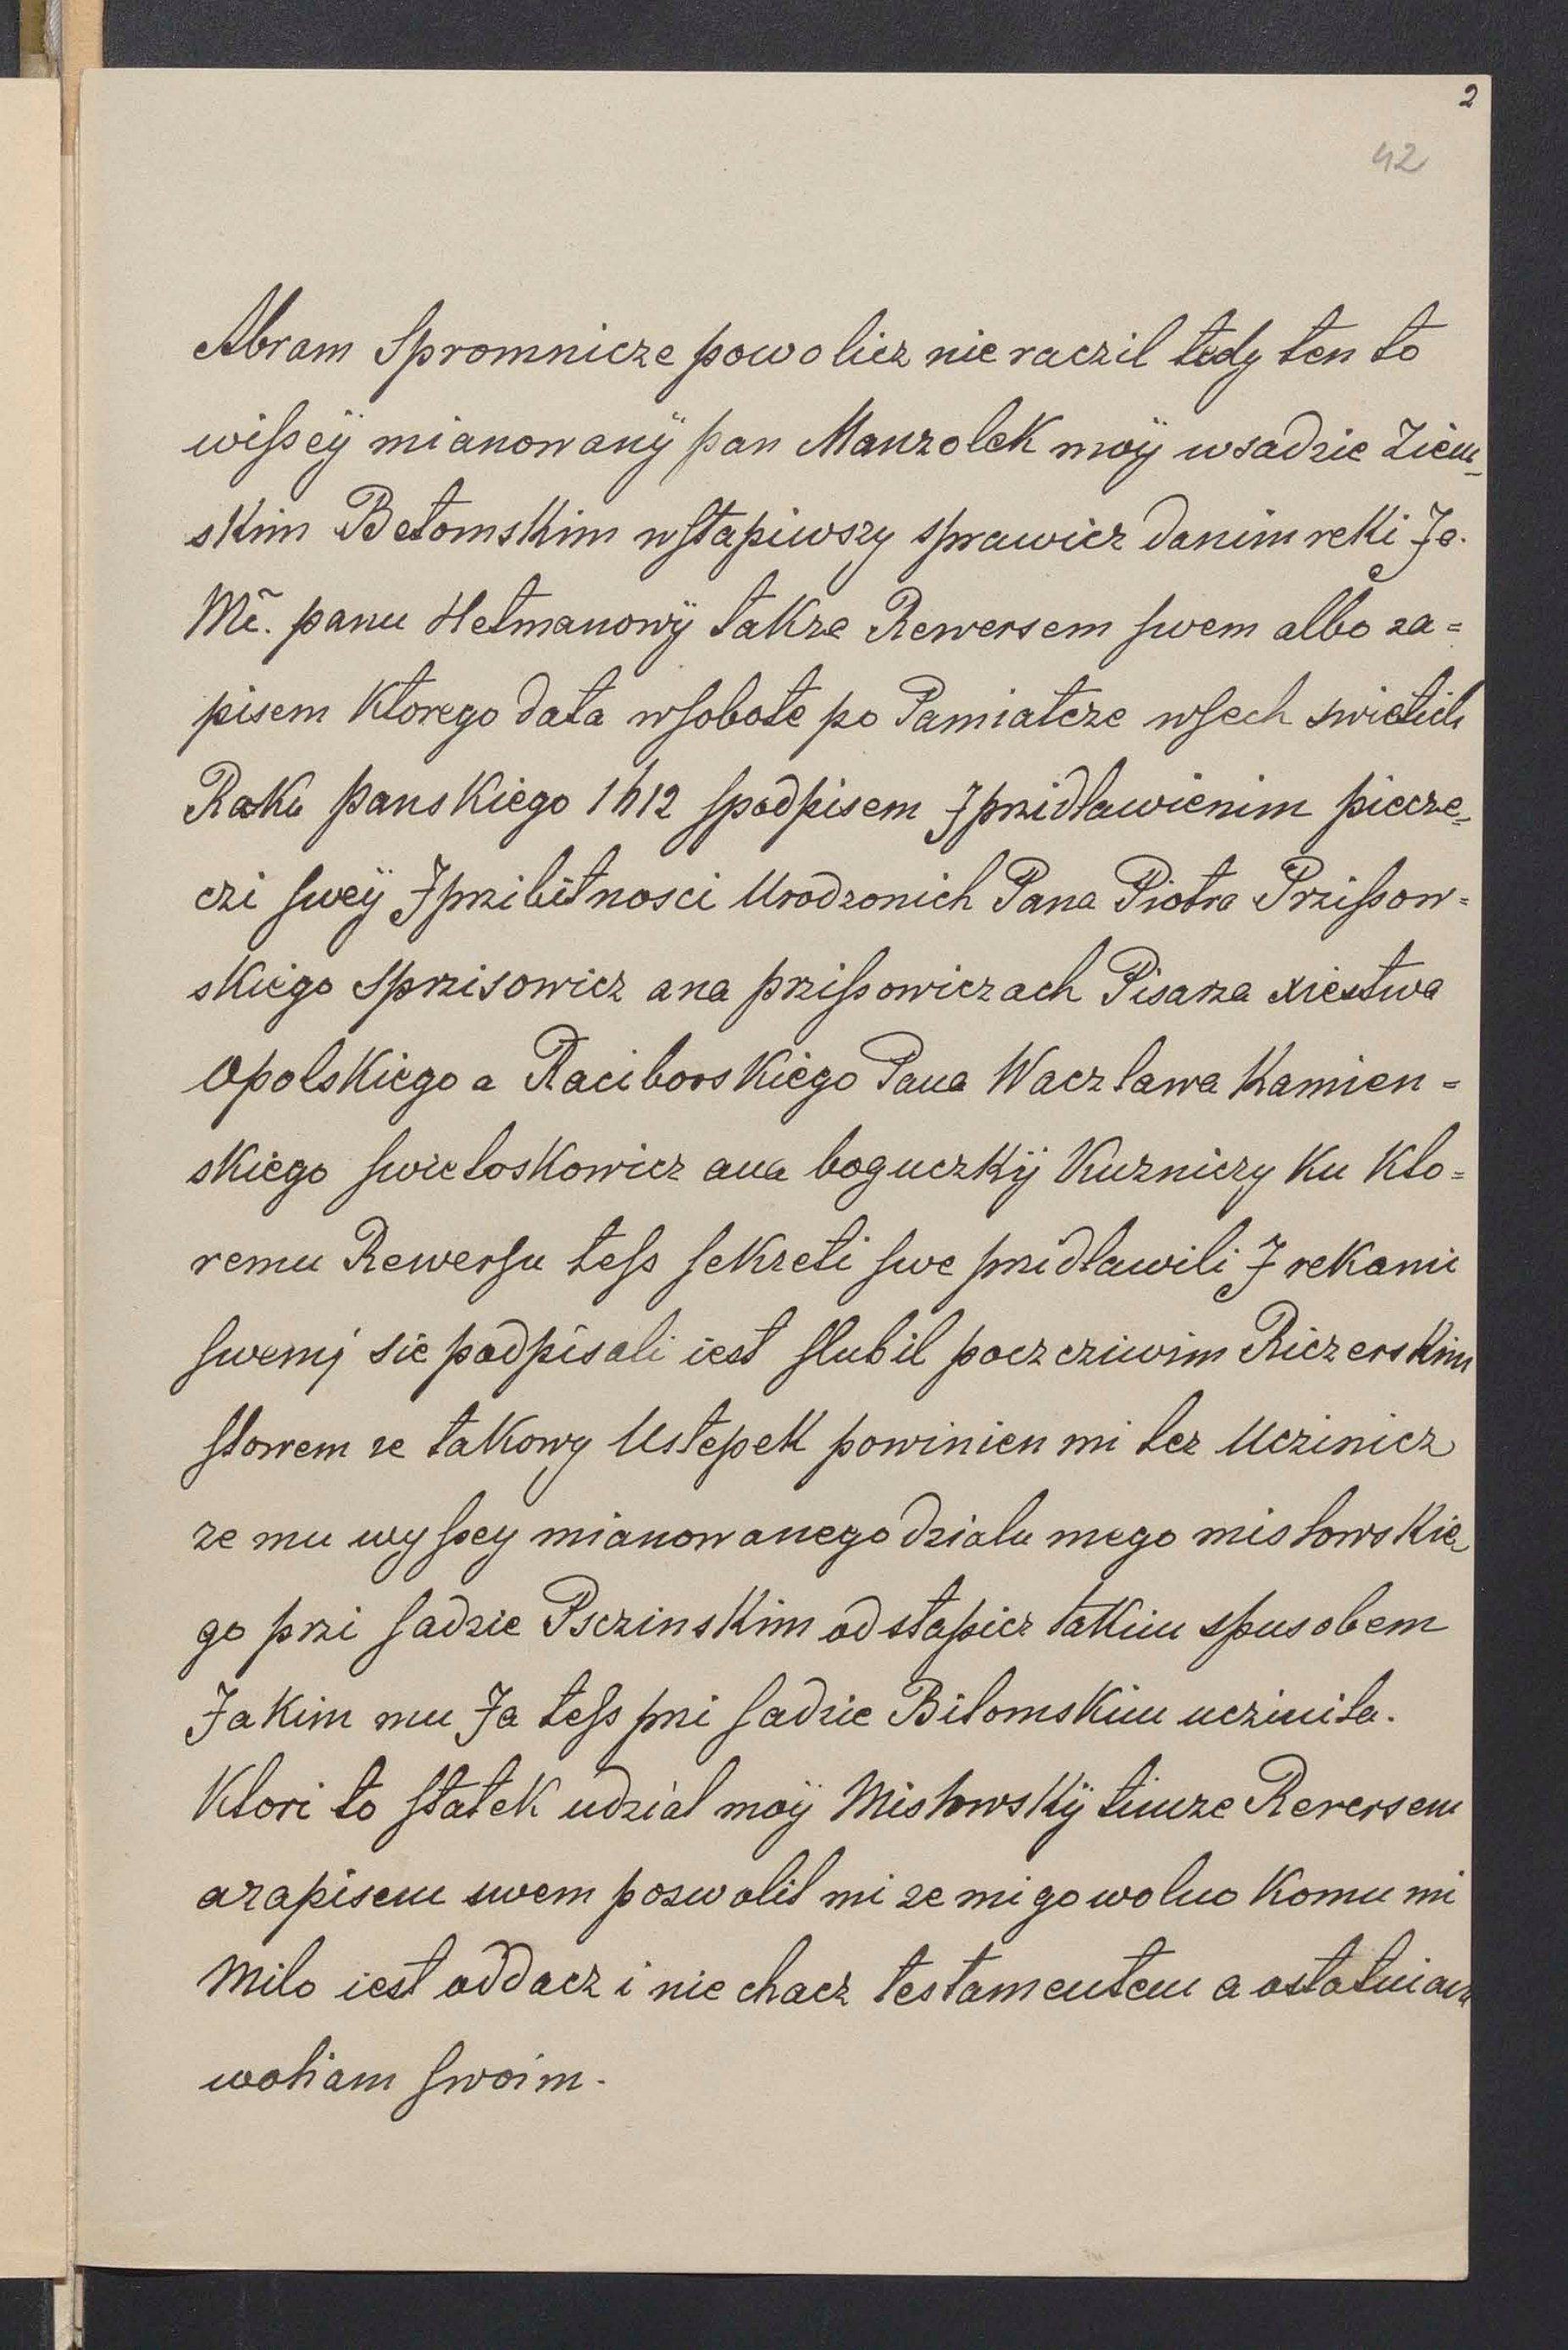 2
42
Abram Spromnicze powolicz nie raczil tedy ten to
wiſseÿ mianowanÿ pan Manzolek moÿ wsadzie Ziem-
skim Betomskim wſtapiwszy sprawicz danim reki Je.
Mẽ. panu Hetmanowÿ takze Rewersem ſwem albo za=
pisem Ktorego data wſobote po Pamiatcze wſech swietich
Roku panskiego 1612 ſpodpisem J przidlawienim piecze=
czi ſweÿ J przibitnosci Urodzonich Pana Piotra Prziſsow=
skiego Sprzisowicz ana prziſsowiczach Pisarza xiestwa
Opolskiego a Raciborskiego Pana Waczlawa Kamien=
skiego ſwieloskowicz ana boguczkÿ Kuzniczy Ku Kto=
remu Rewerſu teſs ſekreti ſwe przidlawili J rekami
ſwemj sie podpisali iest ſlubil poczcziwim Riczerskim
ſlowem ze takowy Ustepek powinien mi tez Uczinicz
ze mu wyſsey mianowanego dzialu mego mislowskie=
go przi ſadzie Psczinskim odstapicz takim spusobem
Jakim mu Ja teſs przi ſadzie Bitomskim uczinila.
Ktori to ſtatek udzial moÿ Mislowskÿ timze Reversem
azapisem swem pozwolil mi ze mi go wolno Komu mi
Milo iest oddacz i nie chacz testamentem a ostatniam
woliam ſwoim.